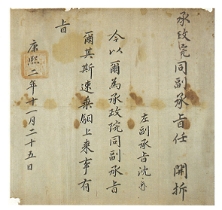 承政院同副承旨任 開拆
左副承旨沈
今以爾為承政院同副承旨
爾其斯速乘馹上來事有
旨
康熙二年十一月二十五日